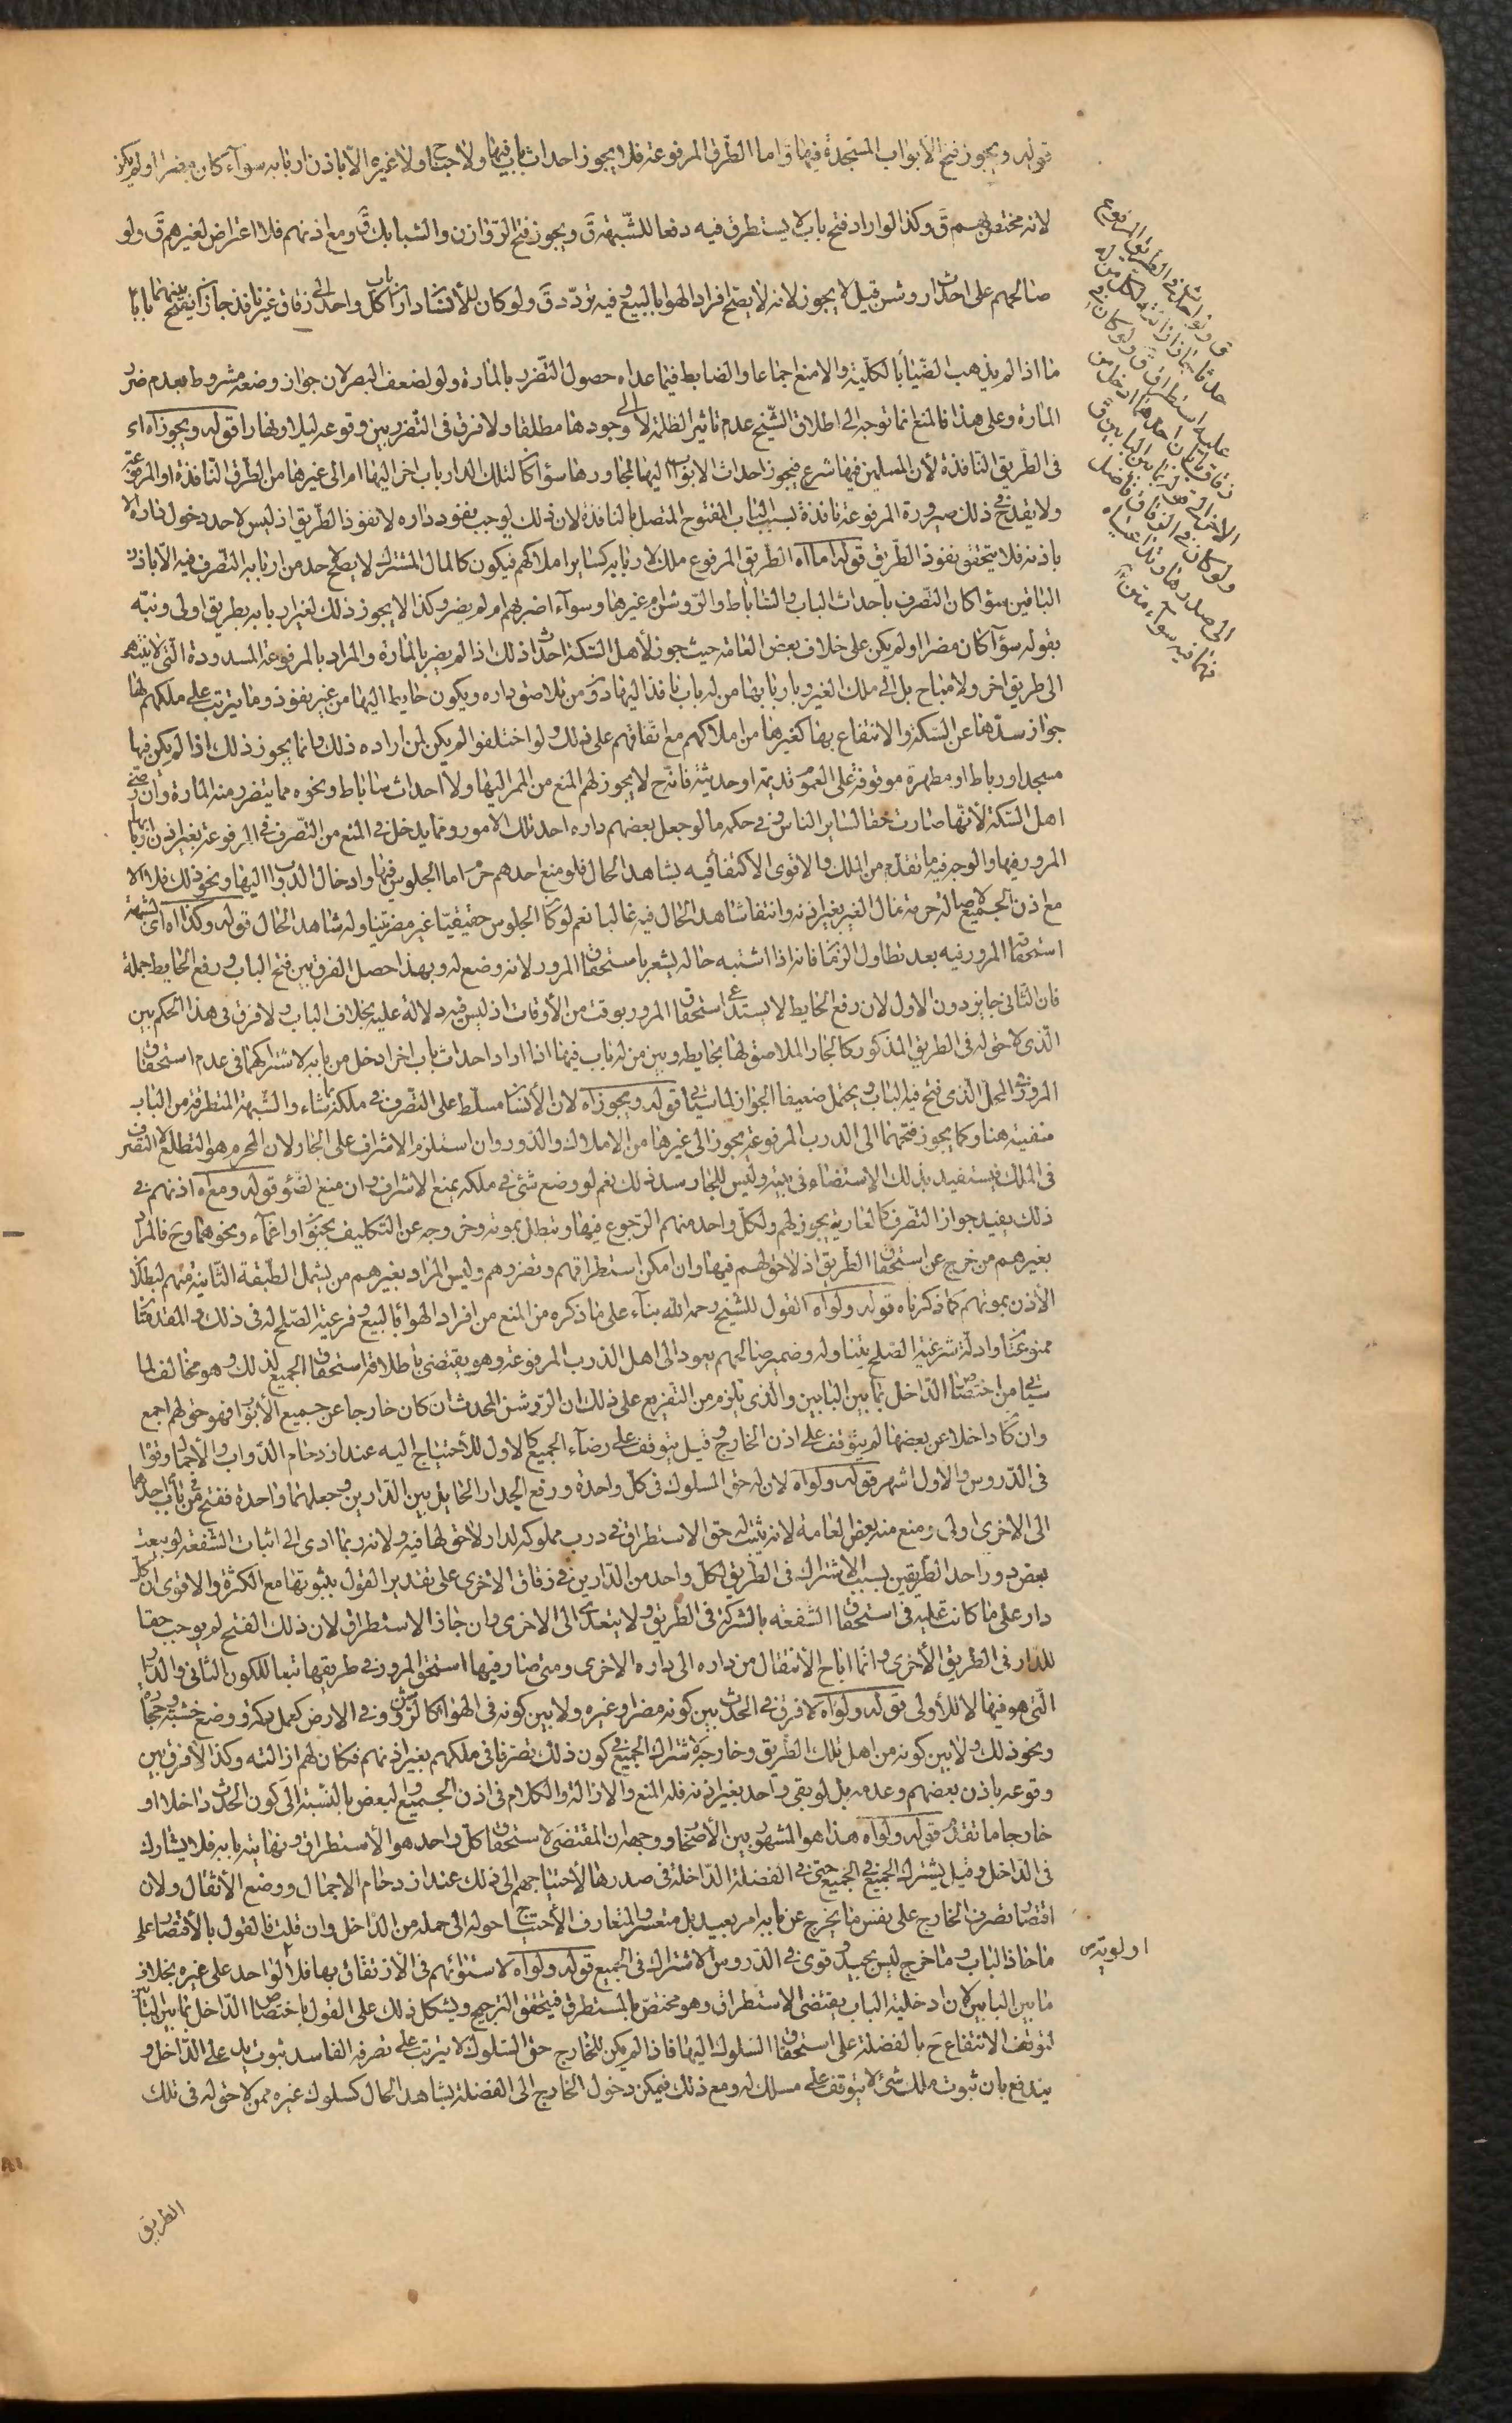 قوله ويجوز فتح الأبواب المستجدة فيها وأما الطرق المرفوعة فلا يجوز احداث باب فيها ولا جناح ولا غيره الا باذن اربابه سوآء كان مضرا او لم يكن
لانه مختص بهم ق وكذا لو اراد فتح باب لا يستطرق فيه دفعا للشبهة ق ويجوز فتح الروازن والشبابيك ق ومع اذنهم فلا اعتراض لغيرهم ق ولو
صالحهم على احداث روشن قيل لا يجوز لانه لا يصح افراد الهوا بالبيع وفيه تردد ق ولو كان للأنسان داران باب كل واحد الى زقاق غير نافذ جاز ان يفتح بينهما بابا
ما اذا لم يذهب الضياء بالكلية والا منع اجماعا والضابط فيما عداه حصول التضرر بالمارة ولو لضعف البصر لان جواز وضعه مشروط بعدم ضرر
المارة وعلى هذا فالمنع انما توجه الى اطلاق الشيخ عدم تاثير الظلمة لا الى وجودها مطلقا ولا فرق في التضرر بين وقوعه ليلا او نهارا قوله ويجوز اه اي
في الطريق النافذة لأن المسلمين فيها شرع فيجوز احداث الابواب اليها لمجاورها سوآء كان لتلك الدار باب اخر اليها ام الى غيرها من الطرق النافذة او المرفوعة
ولا يقدح في ذلك صيرورة المرفوعة نافذة بسبب الباب المفتوح المتصل بالنافذة لان ذلك يوجب نفوذ داره لا نفوذ الطريق اذ ليس لاحد دخول داره الا
باذنه فلا يتحقق نفوذ الطريق قوله اما اه الطريق المرفوع ملك لاربابه كساير املاكهم فيكون كالمال المشترك لا يصح لاحد من اربابه التصرف فيه الا باذن
الباقين سوآء كان التصرف باحداث الباب والساباط والروشن ام غيرها وسوآء اضر بهم ام لم يضر وكذا لا يجوز ذلك لغير اربابه بطريق اولى ونبه
بقوله سوآء كان مضرا او لم يكن على خلاف بعض العامة حيث جوز لأهل السكة احداث ذلك اذا لم يضر بالمارة والمراد بالمرفوعة المسدودة التي لا ينتهى
الى طريق اخر ولا مباح بل الى ملك الغير وباربابها من له باب نافذ اليها دون من تلاصق داره ويكون حايطه اليها من غير نفوذ ومما يترتب على ملكهم لها
جواز سدها عن السكة والانتفاع بها كغيرها من املاكهم مع اتفاقهم على ذلك ولو اختلفوا لم يكن لمن اراده ذلك وانما يجوز ذلك اذا لم يكن فيها
مسجد او رباط او مطهرة موقوفة على العموم قديمة او حديثة فانه ح لا يجوز لهم المنع من الممر اليها ولا احداث ساباط ونحوه مما يتضرر منه المارة وأن رضي
اهل السكة لأنها صارت حقا لساير الناس وفي حكمه ما لو جعل بعضهم داره احد تلك الامور ومما يدخل في المنع من التصرف في المرفوعة بغير اذن اربابها
المرور فيها والوجه فيه ما تقدم من الملك والاقوى الاكتفاء فيه بشاهد الحال فلو منع احدهم حرم اما الجلوس فيها وادخال الدواب اليها ونحو ذلك فلا الا
مع اذن الجميع لاصالة حرمة مال الغير بغير اذنه وانتفاء شاهد الحال فيه غالبا نعم لو كان الجلوس خفيفا غير مضر تناوله شاهد الحال قوله وكذا اه اي لشبهة
استحقاق المرور فيه بعد تطاول الزمان فانه اذا اشتبه حاله يشعر باستحقاق المرور لانه وضع له وبهذا حصل الفرق بين فتح الباب ورفع الحايط جملة
فان الثاني جايز دون الاول لان رفع الحايط لا يستدعي استحقاق المرور بوقت من الأوقات اذ ليس فيه دلالة عليه بخلاف الباب ولا فرق في هذا الحكم بين
الذي لا حق له في الطريق المذكور كالجار الملاصق لها بحايطه وبين من له باب فيها اذا اراد احداث باب اخر ادخل من بابه لاشتراكهما في عدم استحقاق
المرور في المحل الذي فتح فيه الباب ويحتمل ضعيفا الجواز لما سيأتي قوله ويجوز اه لان الأنسان مسلط على التصرف في ملكه بما شاء والشبهة المتطرقة من الباب
منفية هنا وكما يجوز فتحهما الى الدرب المرفوعة يجوز الى غيرها من الاملاك والدور وان استلزم الاشراف على الجار ولان المحرم هو التطلع لا التصرف
في الملك فيستفيد بذلك الاستضاءة في بيته وليس للجار سد ذلك نعم لو وضع شئ في ملكه يمنع الاشراف وان منع الضوء قوله ومع اه اذنهم في
ذلك يفيد جواز التصرف كالعارية يجوز لهم ولكل واحد منهم الرجوع فيها وتبطل بموته وخروجه عن التكليف بجنون او اغماء ونحوهما وح فالمراد
بغيرهم من خرج عن استحقاق الطريق اذ لا حق لهم فيها وان امكن استطراقهم وتضررهم وليس المراد بغيرهم من يشمل الطبقة الثانية منهم لبطلان
الأذن بموتهم كما ذكرناه قوله ولو اه القول للشيخ رحمه الله بناء على ما ذكره من المنع من افراد الهواء بالبيع وفرعية الصلح له في ذلك والمقدمتان
ممنوعتان وادلة شرعية الصلح يتناوله وضمير صالحهم يعود الى اهل الدرب المرفوعة وهو يقتضى باطلاقه استحقاق الجميع لذلك وهو مخالف لما
سيأتي من اختصاص الداخل بما بين البابين والذي يلزم من التفريع على ذلك ان الروشن المحدث ان كان خارجا عن جميع الأبواب فهو حق لهم اجمع
وان كان داخلا عن بعضها لم يتوقف على اذن الخارج وقيل يتوقف على رضاء الجميع كالاول للأحتياج اليه عند ازدحام الدواب والأحمال وقواه
في الدروس والاول اشهر قوله ولو اه لان له حق السلوك في كل واحدة ورفع الجدار الحايل بين الدارين وجعلهما واحدة ففتح باب من احدهما
الى الاخرى اولى ومنع منه بعض العامة لانه يثبت له حق الاستطراق في درب مملوكة لدار لا حق لها فيه ولانه ربما ادى الى اثبات الشفعة لو بيعت
بعض دور احد الطريقين بسبب الاشتراك في الطريق لكل واحد من الدارين في زقاق الاخرى على تقدير القول بثبوتها مع الكثرة والاقوى ان كل
دار على ما كانت عليه في استحقاق الشفعة بالشركة في الطريق ولا يتعدى الى الاخرى وان جاز الاستطراق لان ذلك الفتح لم يوجب حقا
للدار في الطريق الأخرى وانما اباح الأنتقال من داره الى داره الاخرى ومتى صار فيها استحق المرور في طريقها تبعا للكون الثاني والدار
التي هو فيها لا للأولى قوله ولو اه لا فرق في المحدث بين كونه مضرا وغيره ولا بين كونه في الهواء كالروشن وفي الارض كعمل دكة ووضع خشبة وحجارة
ونحو ذلك ولا بين كونه من اهل تلك الطريق وخارجه لاشتراك الجميع في كون ذلك تصرفا في ملكهم بغير اذنهم فكان لهم ازالته وكذا لا فرق بين
وقوعه باذن بعضهم وعدمه بل لو بقي واحد بغير اذنه فله المنع والازالة والكلام في اذن الجميع والبعض بالنسبة الى كون المحدث داخلا او
خارجا ما تقدم قوله ولو اه هذا هو المشهور بين الأصحاب ووجهه ان المقتضى لاستحقاق كل واحد هو الأستطراق ونهايته بابه فلا يشارك
في الداخل وقيل يشترك الجميع في الجميع حتى في الفضلة الداخلة في صدرها لأحتياجهم الى ذلك عند ازدحام الاحمال ووضع الأثقال ولان
اقتصار تصرف الخارج على نفس ما يخرج عن بابه امر بعيد بل متعسر والمتعارف الأحتياج الى حوله الى جملة من الداخل وان قلت فالقول بالأقتصار على
ما حاذى الباب وما خرج ليس بجيد وقوى في الدروس الاشتراك في الجميع قوله ولو اه لاستوائهم في الأرتفاق بها فلا اولوية لواحد على غيره بخلاف
ما بين البابين لان ادخلية الباب يقتضى الاستطراق وهو مختص بالمستطرق فيتحقق الترجيح ويشكل ذلك على القول باختصاص الداخل بما بين البابين
لتوقف الانتفاع ح بالفضلة على استحقاق السلوك اليها فاذا لم يكن للخارج حق السلوك لا يترتب على تصرفه الفاسد ثبوت يد على الداخل و
يندفع بان ثبوت ملك شئ لا يتوقف على مسلك له ومع ذلك فيمكن دخول الخارج الى الفضلة بشاهد الحال كسلوك غيره ممن لا حق له في تلك
الطريق
ق ولو احدث في الطريق المرفوع
حدثا جاز ازالته لكل من له
عليه استطراق ق ولو كان في
زقاق بابان احدهما ادخل من
الاخر
ولو كان في الزقاق فاضل
الى صدرها وتداعياه
فهما فيه سوآء
اولوية